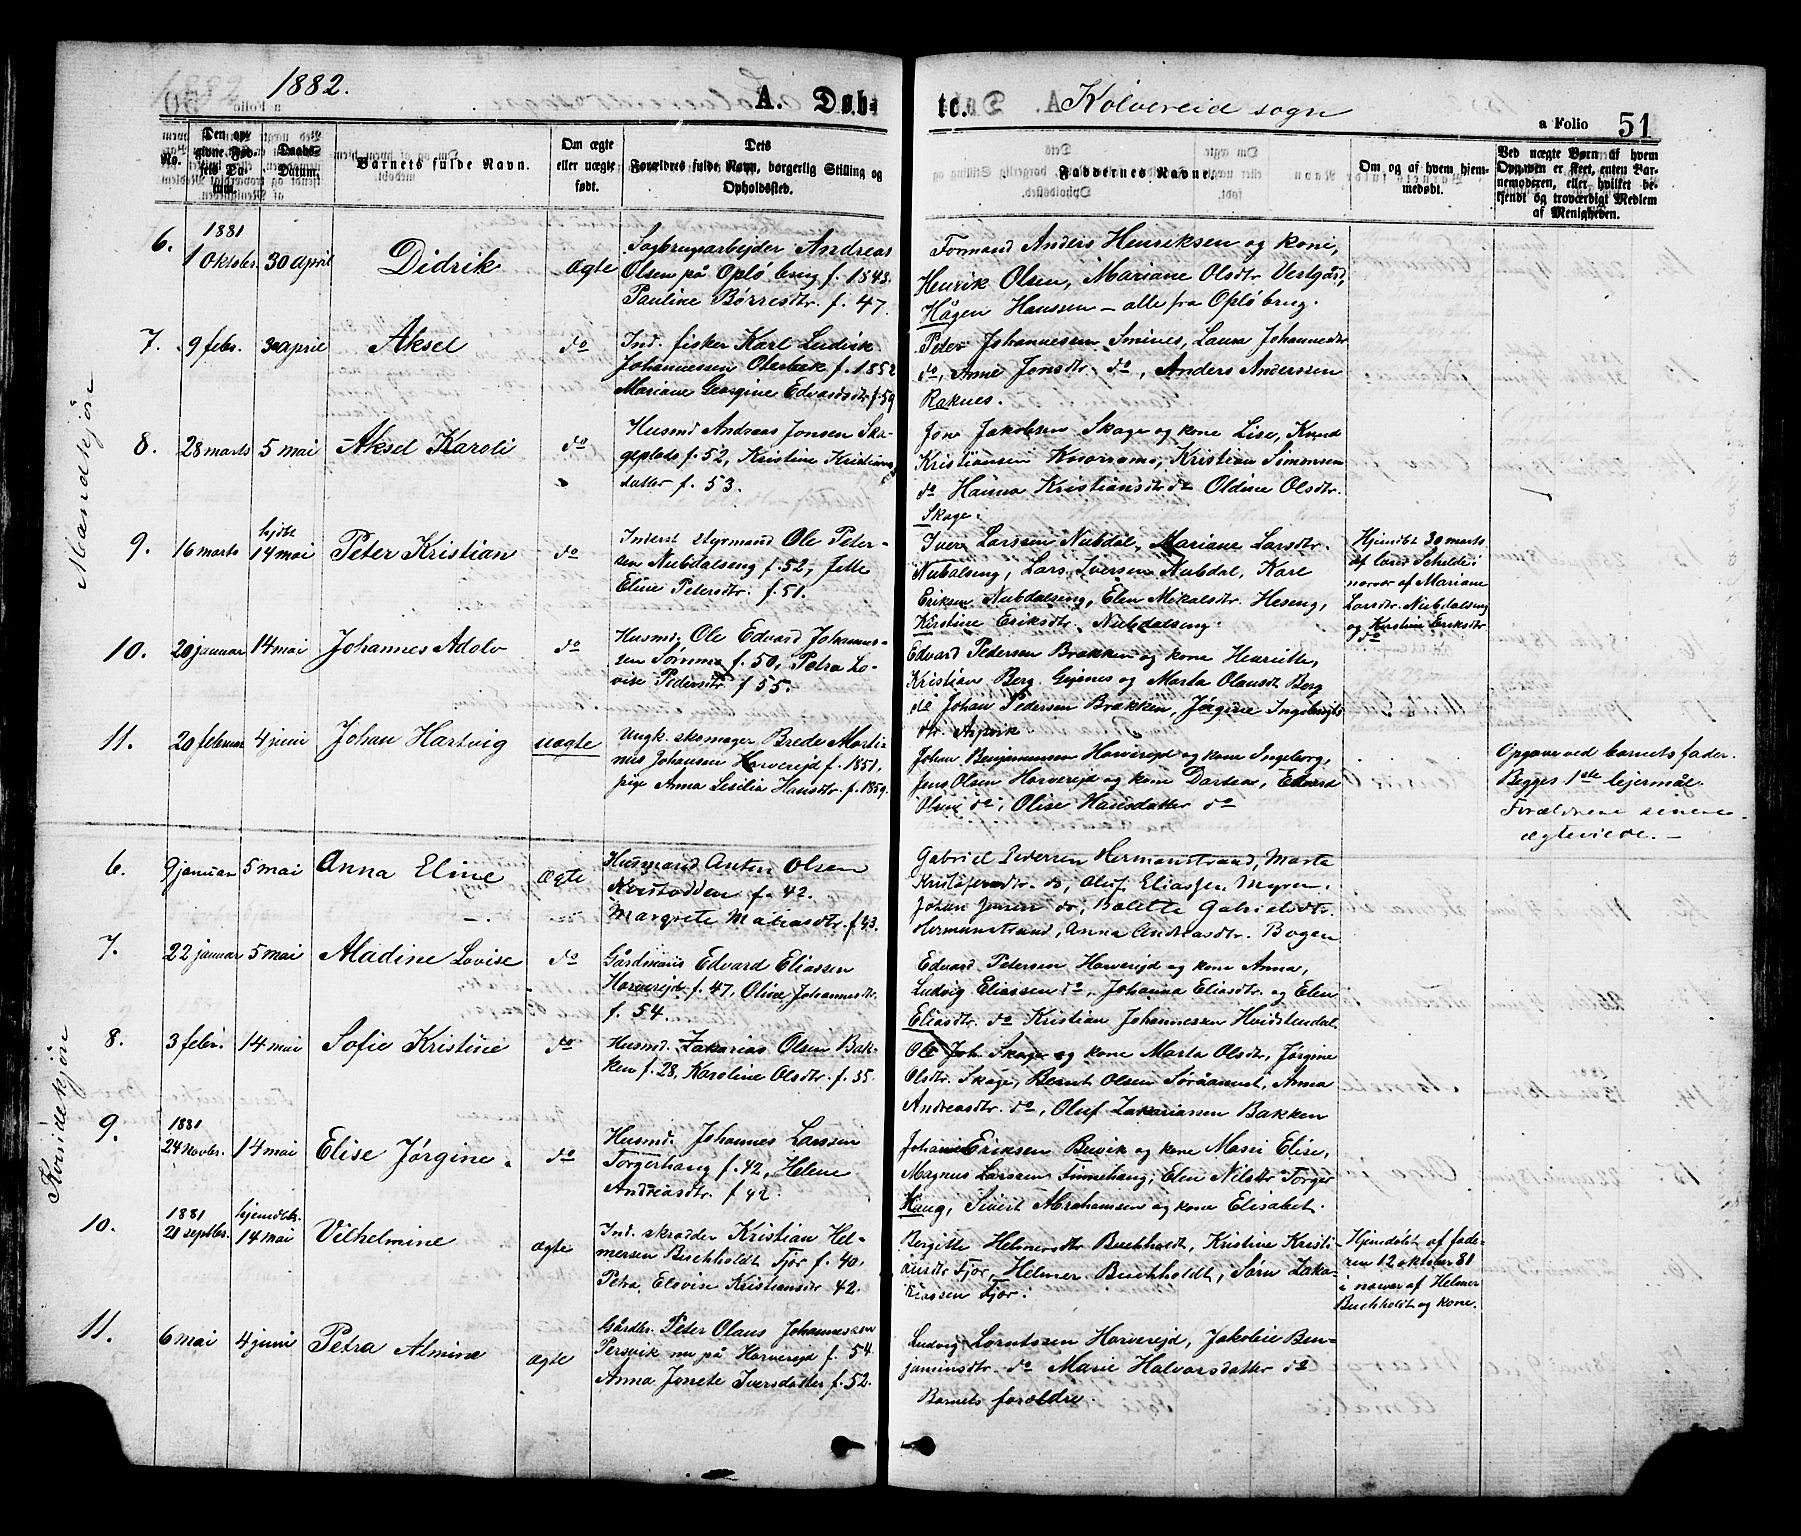 1882.
A. Døb-
te.
Kolvereid sogn
a Folio 51
No.
Den opgivne Fødsels Datum.
Daabs-Datum.
Barnets fulde Navn.
Om ægte eller uægte født.
Dets Forældres fulde Navn, borgerlig Stilling og Opholdssted.
Faddernes Navne.
Om og af hvem hjemmedøbt.
Ved uægte Børn af hvem Opgaven er skeet, enten Barnemoderen, eller hvilket bekjendt og troværdigt Medlem af Menigheden.
Mandkjøn
6.
1881
1 oktober.
30 april
Didrik
Ægte
Sagbrugsarbejder Andreas
Olsen på Opløbrug f. 1843.
Pauline Børresdtr. f. 47.
Formand Anders Henriksen og kone,
Henrik Olsen, Mariane Olsdtr Vestgård,
Hågen Hanssen – alle fra Opløbrug.
7.
9 febr.
30 april
Aksel
do
Ind. fisker Karl Ludvik
Johannessen Oterbæk f. 1852
Mariane Georgine Edvardsdtr f. 59
Peter Johannessen Smines, Laura Johannesdtr
do, Anne Jonsdtr. do, Anders Anderssen
Raknes.
8.
28 marts
5 mai
Aksel Karoli
do
Husmd Andreas Jonsen Ska-
geplads f. 52, Kristine Kristians
datter f. 53.
Jon Jakobsen Skage og kone Lise, Knud
Kristiansen Kvorramo, Kristian Simonsen
do Hanna Kristiansdtr do Oldine Olsdtr.
Skage.
9.
16 marts
hjdbt
14 mai
Peter Kristian
do
Inderst styrmand Ole Peter-
sen Nubdalseng f. 52, Jette
Eline Petersdtr. f. 51.
Iver Larssen Nubdal, Mariane Larsdtr.
Nubalseng, Lars Iversen Nubdal, Karl
Eriksen Nubdalseng, Elen Mikalsdtr. Heseng,
Kirstine Eriksdtr. Nubdalseng.
Hjemdbt 30 marts
af lærer Schelde i
nærvær af Mariane
Larsdtr. Nubdalseng
og Kirstine Eriksdtr
do
10.
20 januar
14 mai
Johannes Adolv
do
Husmd. Ole Edvard Johannes-
sen Sømme f. 50, Petra Lo-
vise Pedersdtr f 55.
Edvard Pedersen Brækken og kone Henriette,
Kristian Berg Gjenes og Marta Olausdt Berg
do Johan Pedersen Brækken, Jørgine Ingebrigts
dtr Arpvik
11.
20 februar
4 juni
Johan Hartvig
uægte
Ungk. skomager Brede Marti-
nus Johansen Horverejd f. 1851,
pige Anna Lesilia Hansdtr. f. 1859.
Johan Benjaminsen Horverejd og kone Ingeborg,
Jens Olsen Horverejd og kone Dortea, Edvard
Olsen do, Olise Hansdatter do
Opgave ved barnets fader.
Begges 1ste lejermål.
Forældrene senere
ægteviede. –
Kvindekjøn
6.
9 januar
5 mai
Anna Eline
Ægte
Husmand Anton Olsen
Kvistodden f. 42.
Margrete Matiasdtr. f. 43.
Gabriel Pedersen Hermanstrand, Marta
Kristofersdtr. do, Oluf Eliassen Myren,
Johan Jensen do, Bolette Gabrielsdtr.
Hermanstrand, Anna Andreasdtr. Bogen
7.
22 januar
5 mai
Aladine Lovise
do
Gårdmans Edvard Eliassen
Horverejd f. 47, Oline Johannesdtr.
f. 54.
Edvard Petersen Horverejd og kone Anna,
Ludvig Eliassen do, Johanna Eliasdtr. og Elen
Eliasdtr. do Kristian Johannessen Hvidstendal.
8.
3 febr.
14 mai
Sofie Kristine
do
Husmd. Zakarias Olsen Bak-
ken f. 28, Karoline Olsdtr. f. 35.
Ole Joh. Skage og kone Marta Olsdt, Jørgine
Olsdtr. Skage, Bernt Olsen Søråamot, Anna
Andreasdtr. do, Oluf Zakariassen Bakken
9.
1881
24 novbr.
14 mai
Elise Jørgine.
do
Husmd. Johannes Larssen
Torgerhaug f. 42, Helene
Andreasdtr. f 42.
Johan Eriksen Buvik og kone Massi Elise,
Magnus Larssen Finnehaug, Elen Nilsdtr Torger
Haug, Sivert Abrahamsen og kone Elisabet.
10.
1881
21 septbr.
hjemdbt.
14 mai
Vilhelmine
ægte
Ind. skrædder Kristian Hel-
mersen Buchholdt Fjør f. 40.
Petra Elovise Kristiansdtr 42.
Bergitte Helmersdtr Buchholdt, Kristine Kristi-
ansdtr Fjør, Helmer Buchholdt, Søren Zaka-
riassen Fjør.
Hjemdøbt af fade-
ren 12 oktober 81
i nærvær af Helmer
Buchholdt og kone.
11.
6 mai
4 juni
Petra Almine
ægte
Gårdbr. Peter Olaus Johannessen
Persvik nu på Horverejd f. 54.
Anna Jonete Iversdatter f. 52.
Ludvig Lorntssen Horverejd, Jakobie Ben-
jaminsdtr. do Marie Halvorsdatter do
Barnets forældre.